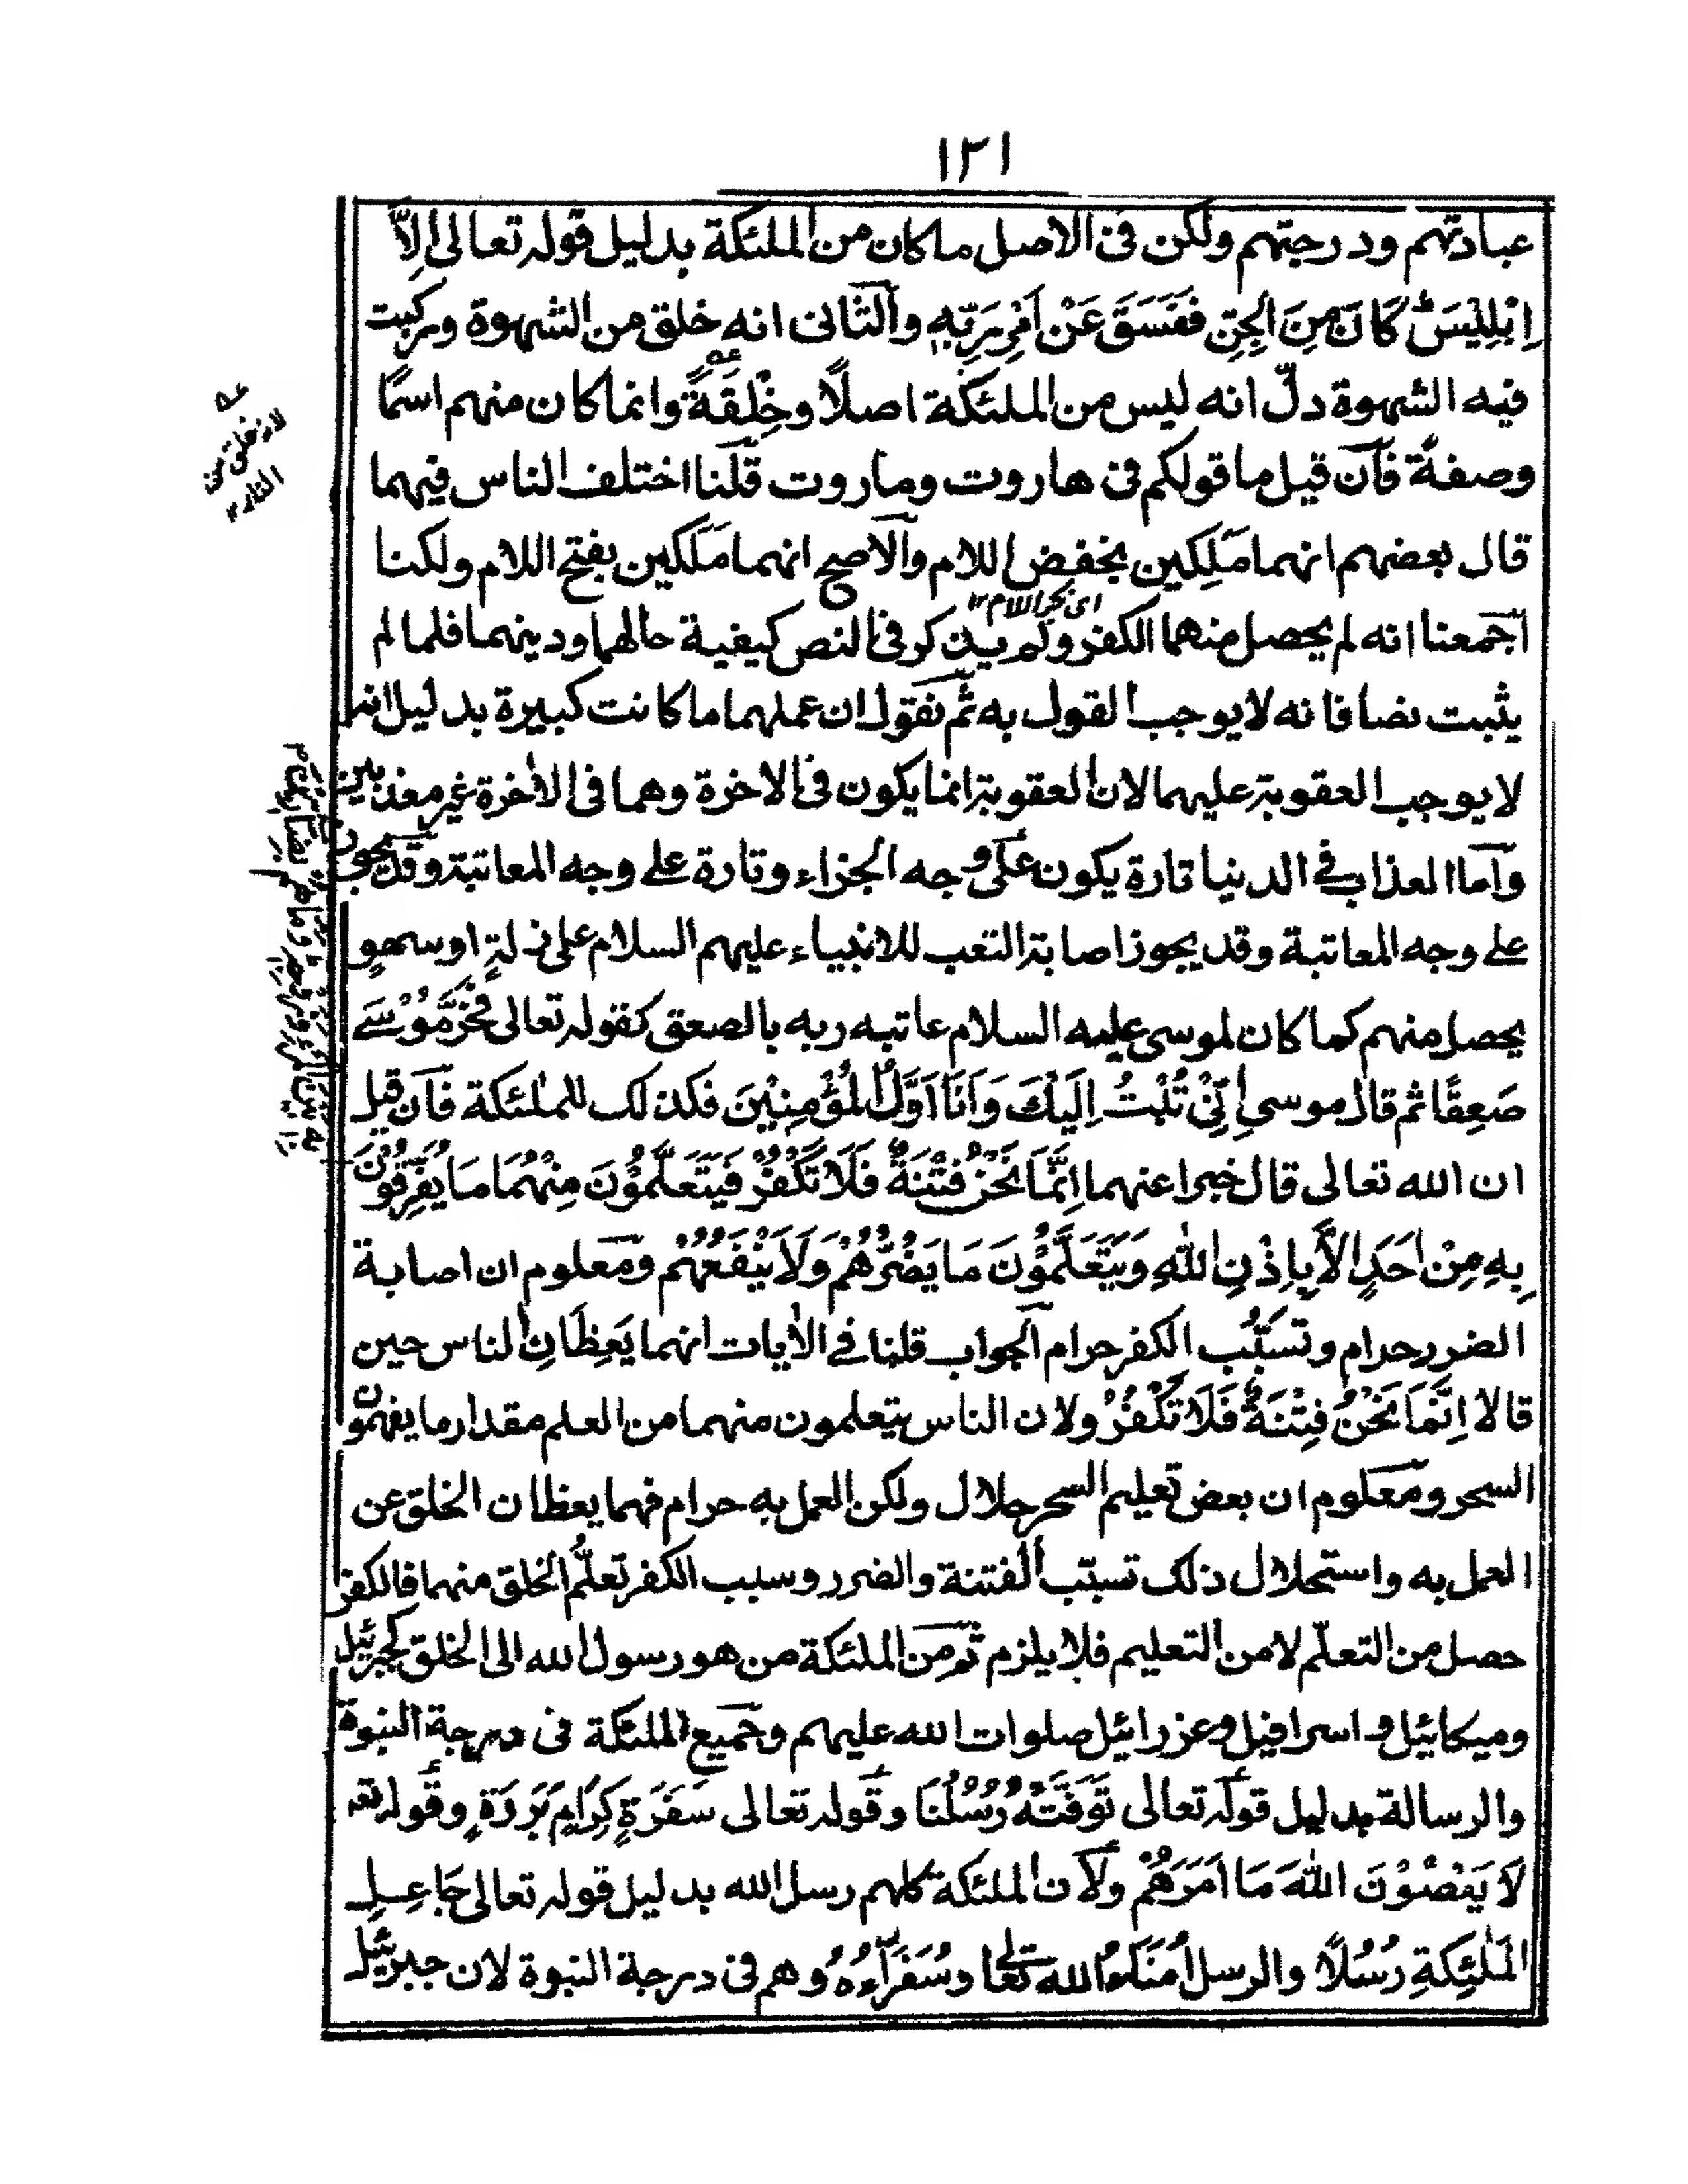 ١٢١
عبادتهم ودرجتهم ولكن فى الاصل ماكان من الملئكة بدليل قوله تعالى اِلَّا
اِبْلِيْسَ كَانَ مِنَ الْجِنِّ فَفَسَقَ عَنْ اَمْرِ رَبِّهٖ والثانى انه خلق من الشهوة وركبت
فيه الشهوة دلّ انه ليس من الملئكة اصلاً وخِلْقَةً وانما كان منهم اسمًا
وصفةً فان قيل ما قولكم فى هاروت وماروت قلنا اختلف الناس فيهما
قال بعضهم انهما مَلِكين بخفض اللام والاصح انهما مَلَكين بفتح اللام ولكنا
اى بكسر اللام ١٢
اجمعنا انه لم يحصل منهما الكفر ولم يذكر فى النص كيفية حالهما ودينهما فلما لم
يثبت نصا فانه لا يوجب القول به ثم نقول ان عملهما ما كانت كبيرة بدليل انه
لا يوجب العقوبة عليهما لان العقوبة انما يكون فى الاخرة وهما فى الاٰخرة غير معذبين
واما العذاب فى الدنيا تارة يكون على وجه الجزاء وتارة على وجه المعاتبة وقد يجوز
على وجه المعاتبة وقد يجوز اصابة التعب للانبياء عليهم السلام على زلةٍ او سهوٍ
يحصل منهم كما كان لموسى عليه السلام عاتبه ربه بالصعق كقوله تعالى فَخَرَّ مُوْسٰى
صَعِقًا ثم قال موسى اِنِّىْ تُبْتُ اِلَيْكَ وَاَنَا اَوَّلُ الْمُؤْمِنِيْنَ فكذلك للملئكة فان قيل
ان الله تعالى قال خبرا عنهما اِنَّمَا نَحْنُ فِتْنَةٌ فَلَا تَكْفُرْ فَيَتَعَلَّمُوْنَ مِنْهُمَا مَا يُفَرِّقُوْنَ
بِهٖ مِنْ اَحَدٍ اِلَّا بِاِذْنِ اللهِ وَيَتَعَلَّمُوْنَ مَا يَضُرُّهُمْ وَلَا يَنْفَعُهُمْ ومعلوم ان اصابة
الضرر حرام وتسبّب الكفر حرام الجواب قلنا فى الاٰيات انهما يَعِظَانِ الناس حين
قالا اِنَّمَا نَحْنُ فِتْنَةٌ فَلَا تَكْفُرْ ولان الناس يتعلمون منهما من العلم مقدار ما يفهمون
السحر ومعلوم ان بعض تعليم السحر حلال ولكن العمل به حرام فهما يعظان الخلق عن
العمل به واستحلال ذلك تسبّب الفتنة والضرر وسبب الكفر تعلّم الخلق منهما فالكفر
حصل من التعلّم لا من التعليم فلا يلزم ثم من الملئكة من هو رسول الله الى الخلق كجبرئيل
وميكائيل واسرافيل وعزرائيل صلوات الله عليهم وجميع الملئكة فى درجة النبوة
والرسالة بدليل قوله تعالى تَوَفَّتْهُ رُسُلُنَا وقوله تعالى سَفَرَةٍ كِرَامٍ بَرَرَةٍ وقوله تعه
لَا يَعْصُوْنَ اللهَ مَا اَمَرَهُمْ ولان الملئكة كلهم رسل الله بدليل قوله تعالى جَاعِلِ
الْمَلٰئِكَةِ رُسُلًا والرسل اُمَنَاءُ الله تعالى وسُفَرَاءُهُ وهم فى درجة النبوة لان جبرئيل
عه
لانه خلق من
النار ١٢